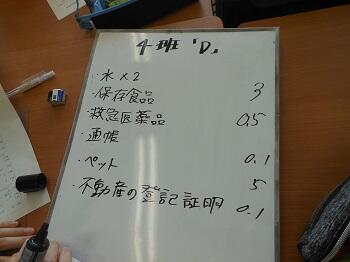 4班「D」
・水×2
・保存食品 3
・救急医薬品 0.5
・通帳
・ペット 0.1
・不動産の登記証明 5
0.1